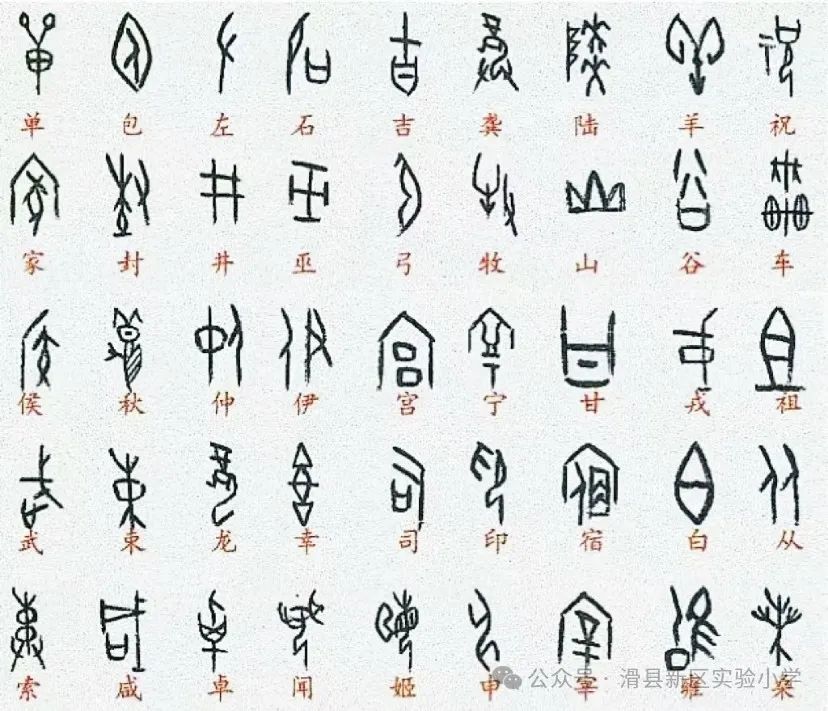 单 包 左 石 吉 龚 陆 羊 祝
家 封 井 巫 弓 牧 山 谷 车
侯 秋 仲 伊 宫 宁 甘 戎 祖
武 束 龙 幸 司 印 宿 白 从
索 咸 卓 闻 姬 申 宰 雍 桑
公众号 · 滑县新区实验小学